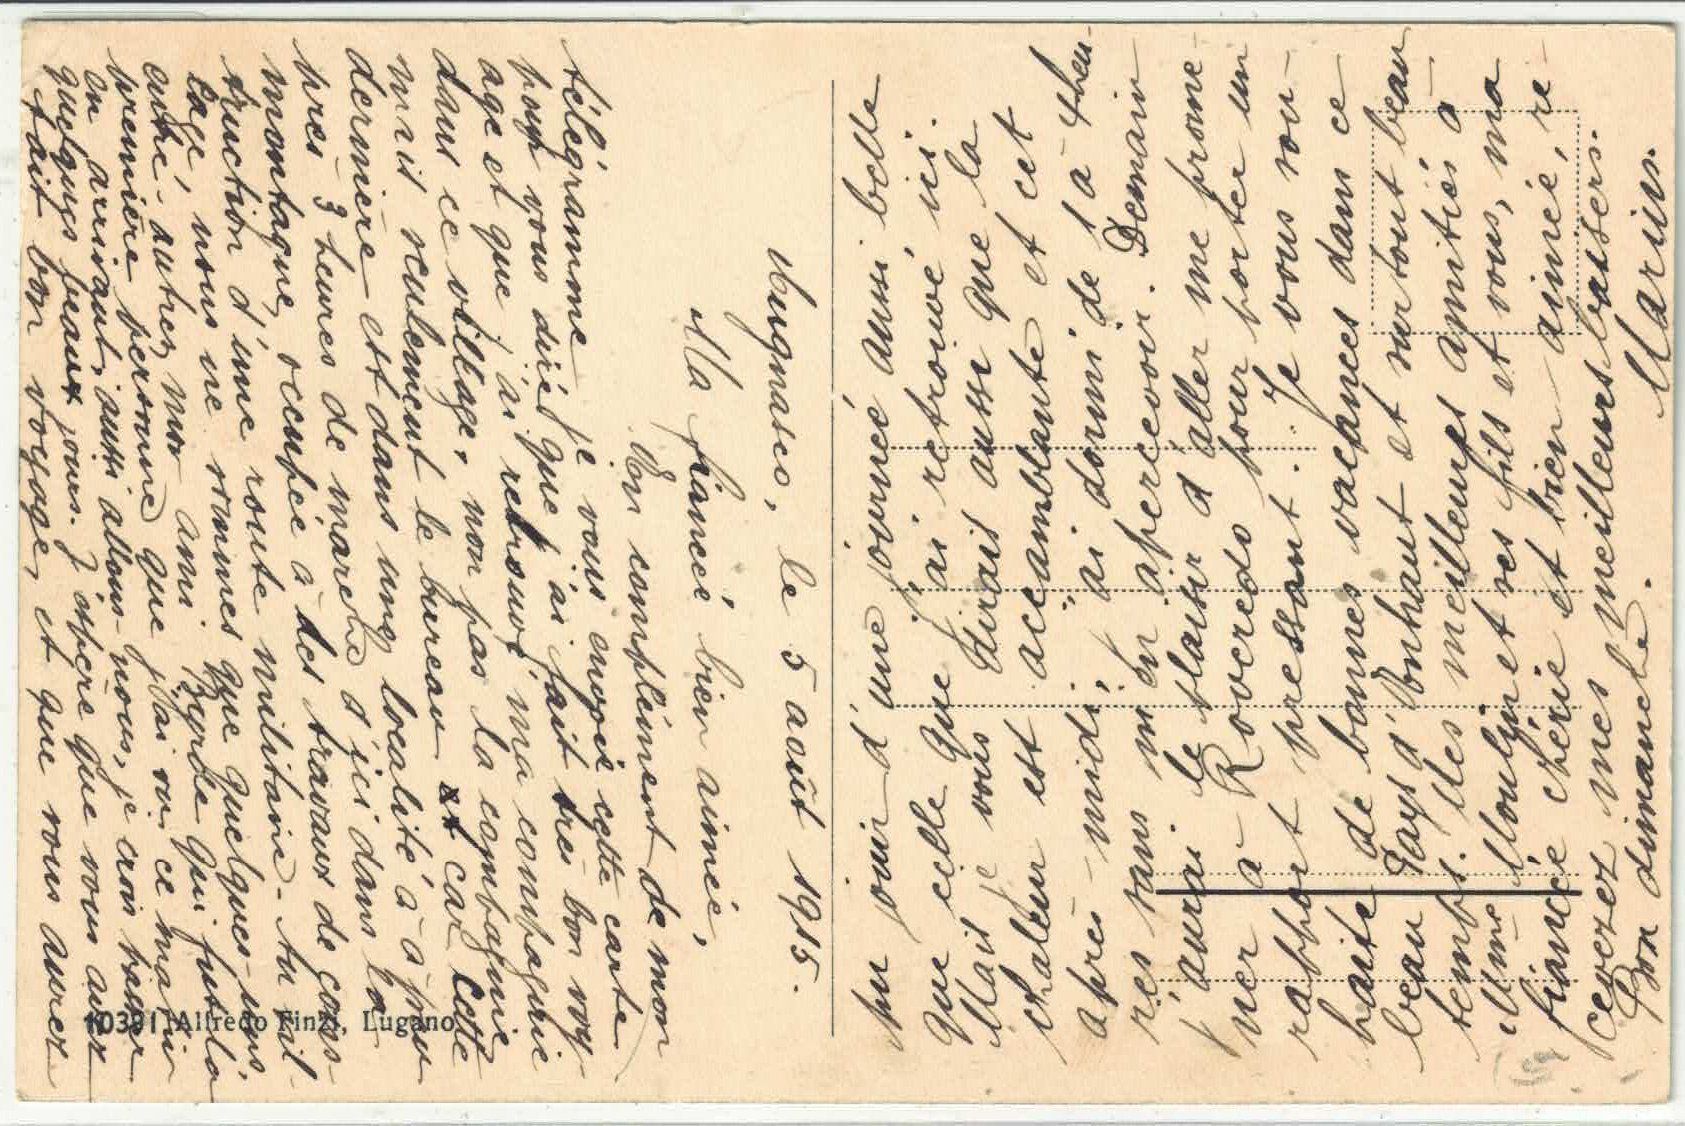 Mugnasco, le 5 août 1915.
Ma fiancée bien aimée,
En complément de mon
télégramme je vous envoie cette carte
pour vous dire que j'ai fait très bon voy-
age et que j'ai retrouvé ma compagnie
dans ce village, non pas la compagnie
mais seulement le bureau car cette
dernière est dans une localité à à peu
près 3 heures de marche d'ici dans la
montagne, occupée à des travaux de cons-
truction d'une route militaire. Au vil-
lage, nous ne sommes que quelques-uns
entre autres mon ami qui fut la
première personne que j'ai vu ce matin
en arrivant, aussi allons-nous, je crois passer
quelques beaux jours. J'espère que vous avez
fait bon voyage, et que vous aurez
pu jouir d'une journée aussi belle
que celle que j'ai retrouvé ici.
Mais je vous dirais aussi que la
chaleur est accamblante et cet
après-midi, j'ai dormi de 1 à 4 heu-
res sans m'en apercevoir. Demain
j'aurai le plaisir d'aller me prome-
ner à Roveredo pour porter un
rapport pressant. Je vous sou-
haite de bonnes vacances dans ce
beau Pays d'Vonhaut et surtout beau
temps. Mes meilleures amitiés à
Mme Moulin et ses fils et vous, ma
fiancée chérie et bien-aimée, re-
cevez mes meilleurs baisers.
Bon dimanche. Marius.
10391 Alfredo Finzi, Lugano.